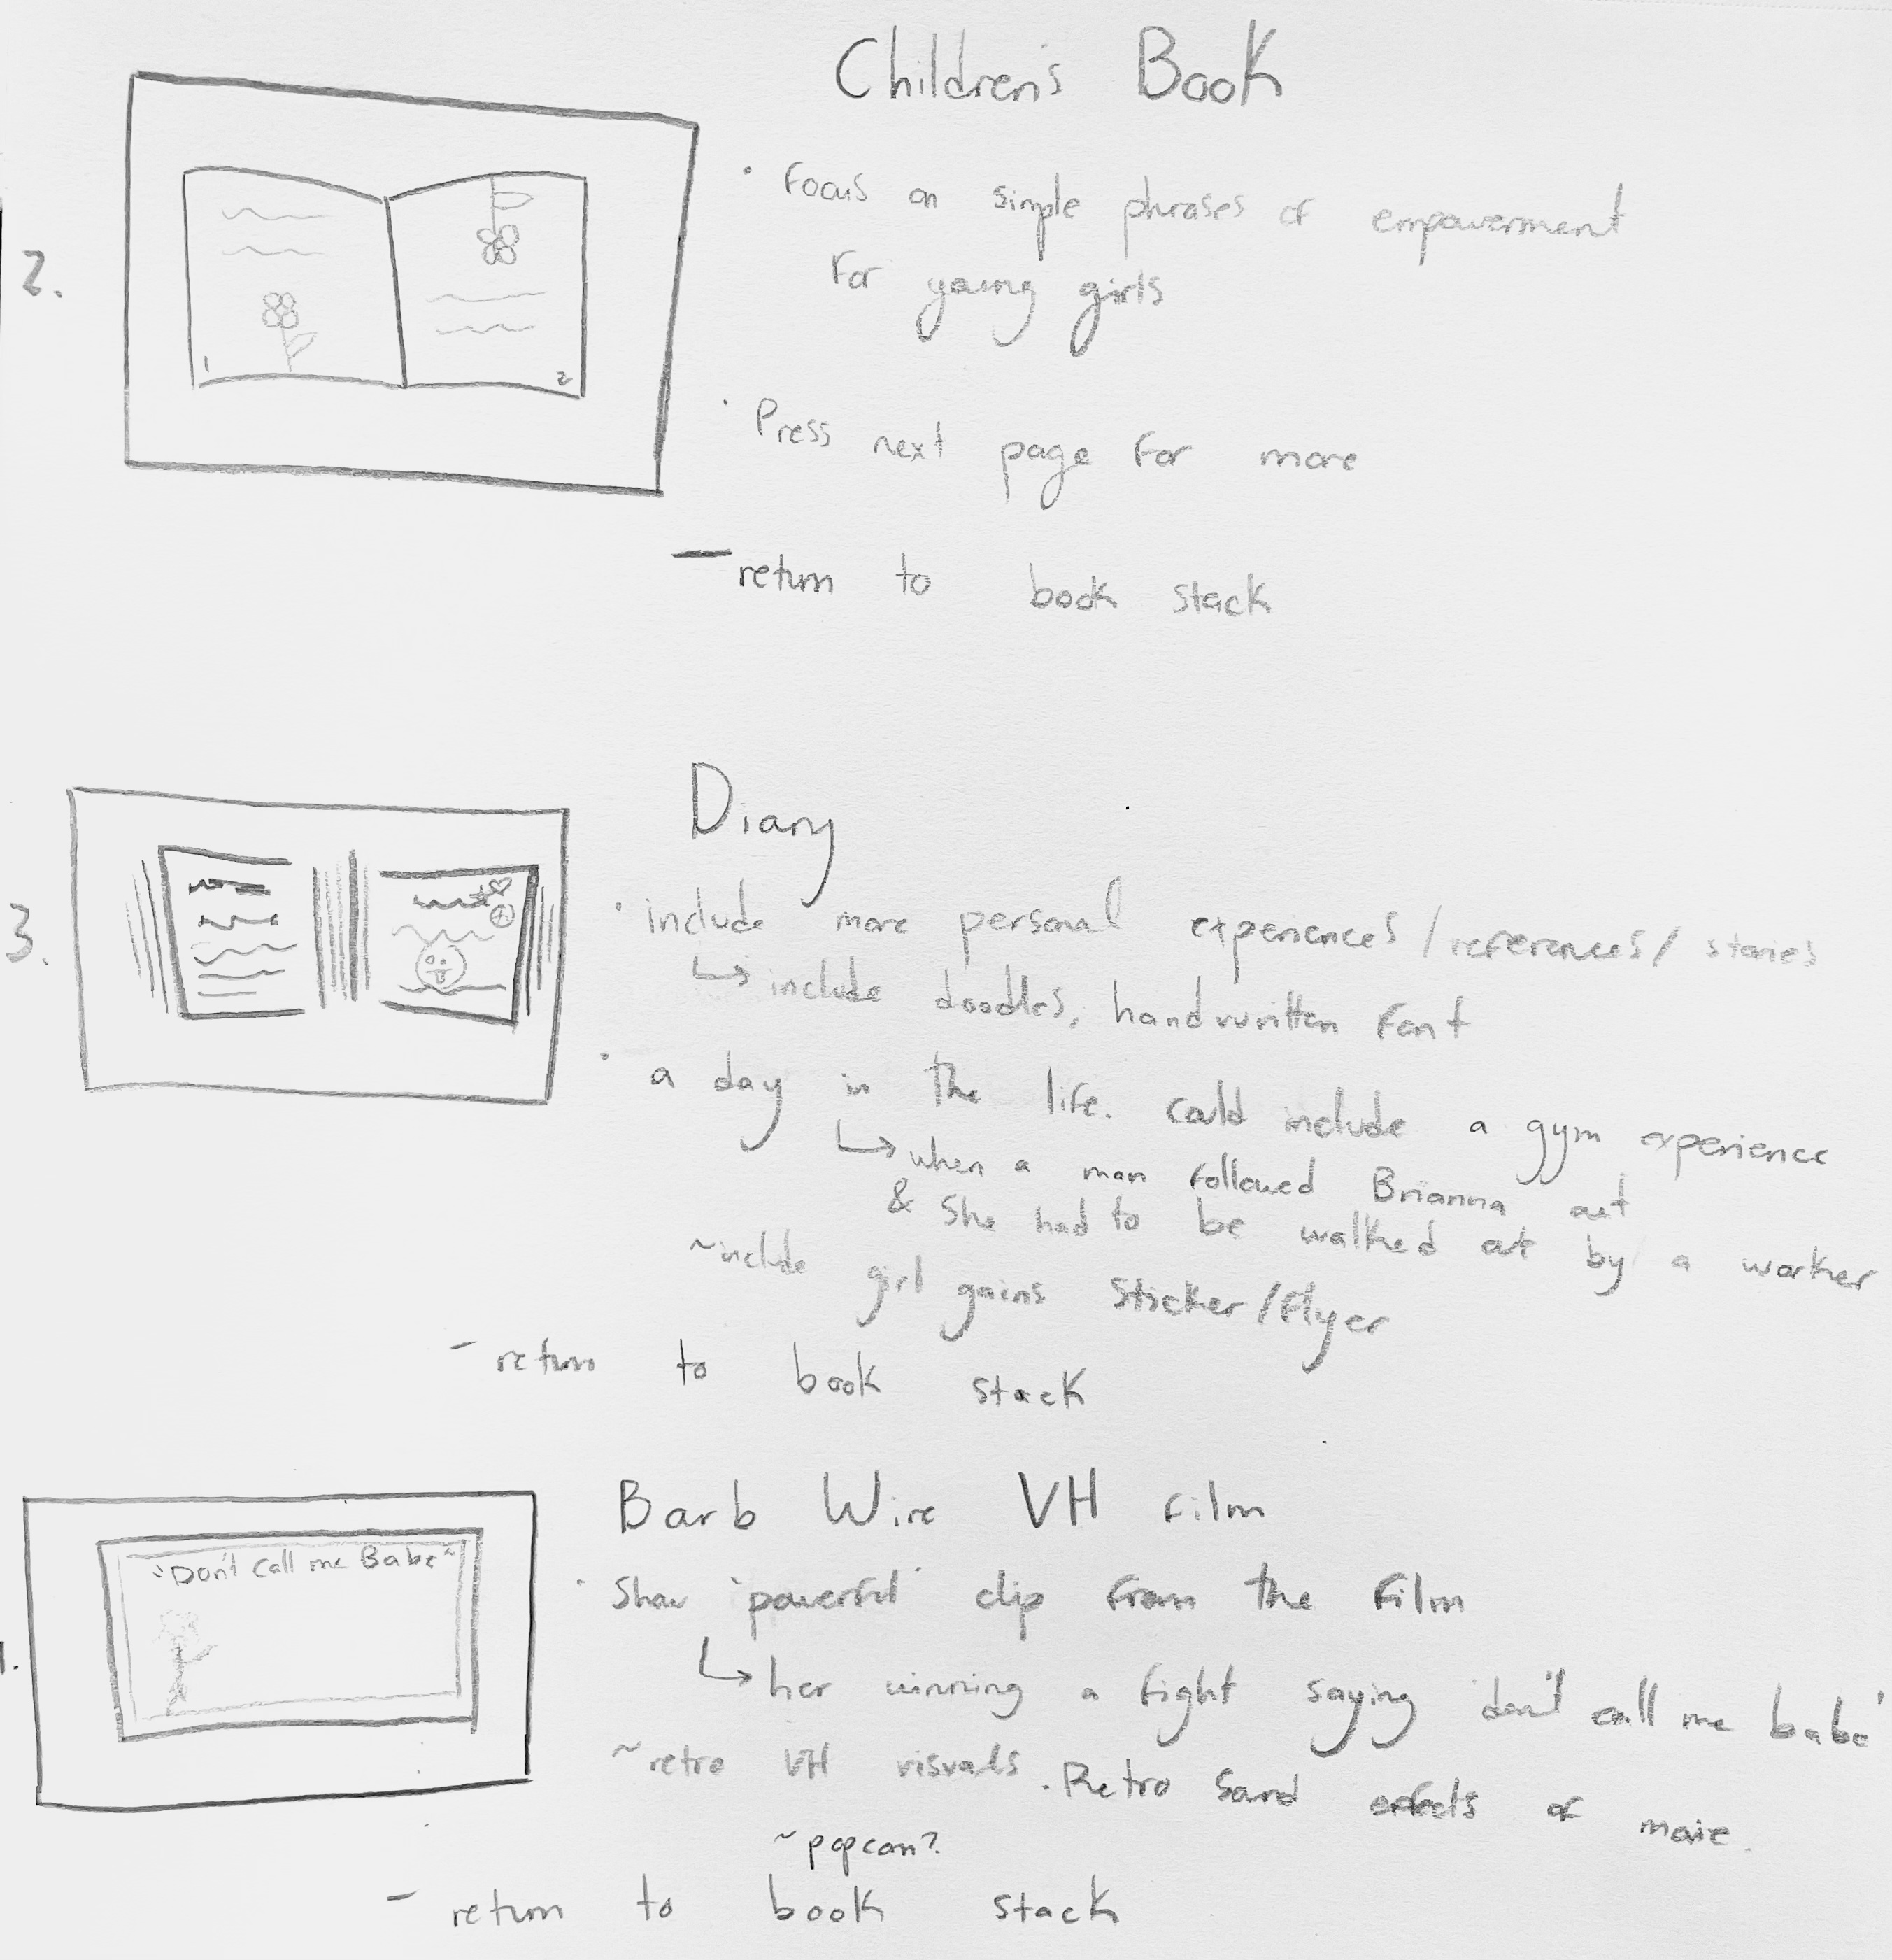 Children's Book
2.
• Focus on simple phrases of empowerment
for young girls
1
2
• Press next page for more
— return to book stack
3.
Diary
• include more personal experiences / references / stories
↳ include doodles, handwritten font
• a day in the life. could include a gym experience
↳ when a man followed Brianna out
& she had to be walked out by a worker
~ include girl gains sticker / flyer
- return to book stack
Barb Wire VH Film
"Don't call me Babe"
• Show 'powerful' clip from the film
↳ her winning a fight saying 'don't call me babe'
~ retro VH visuals. Retro sound effects of movie.
~ popcorn?
- return to book stack